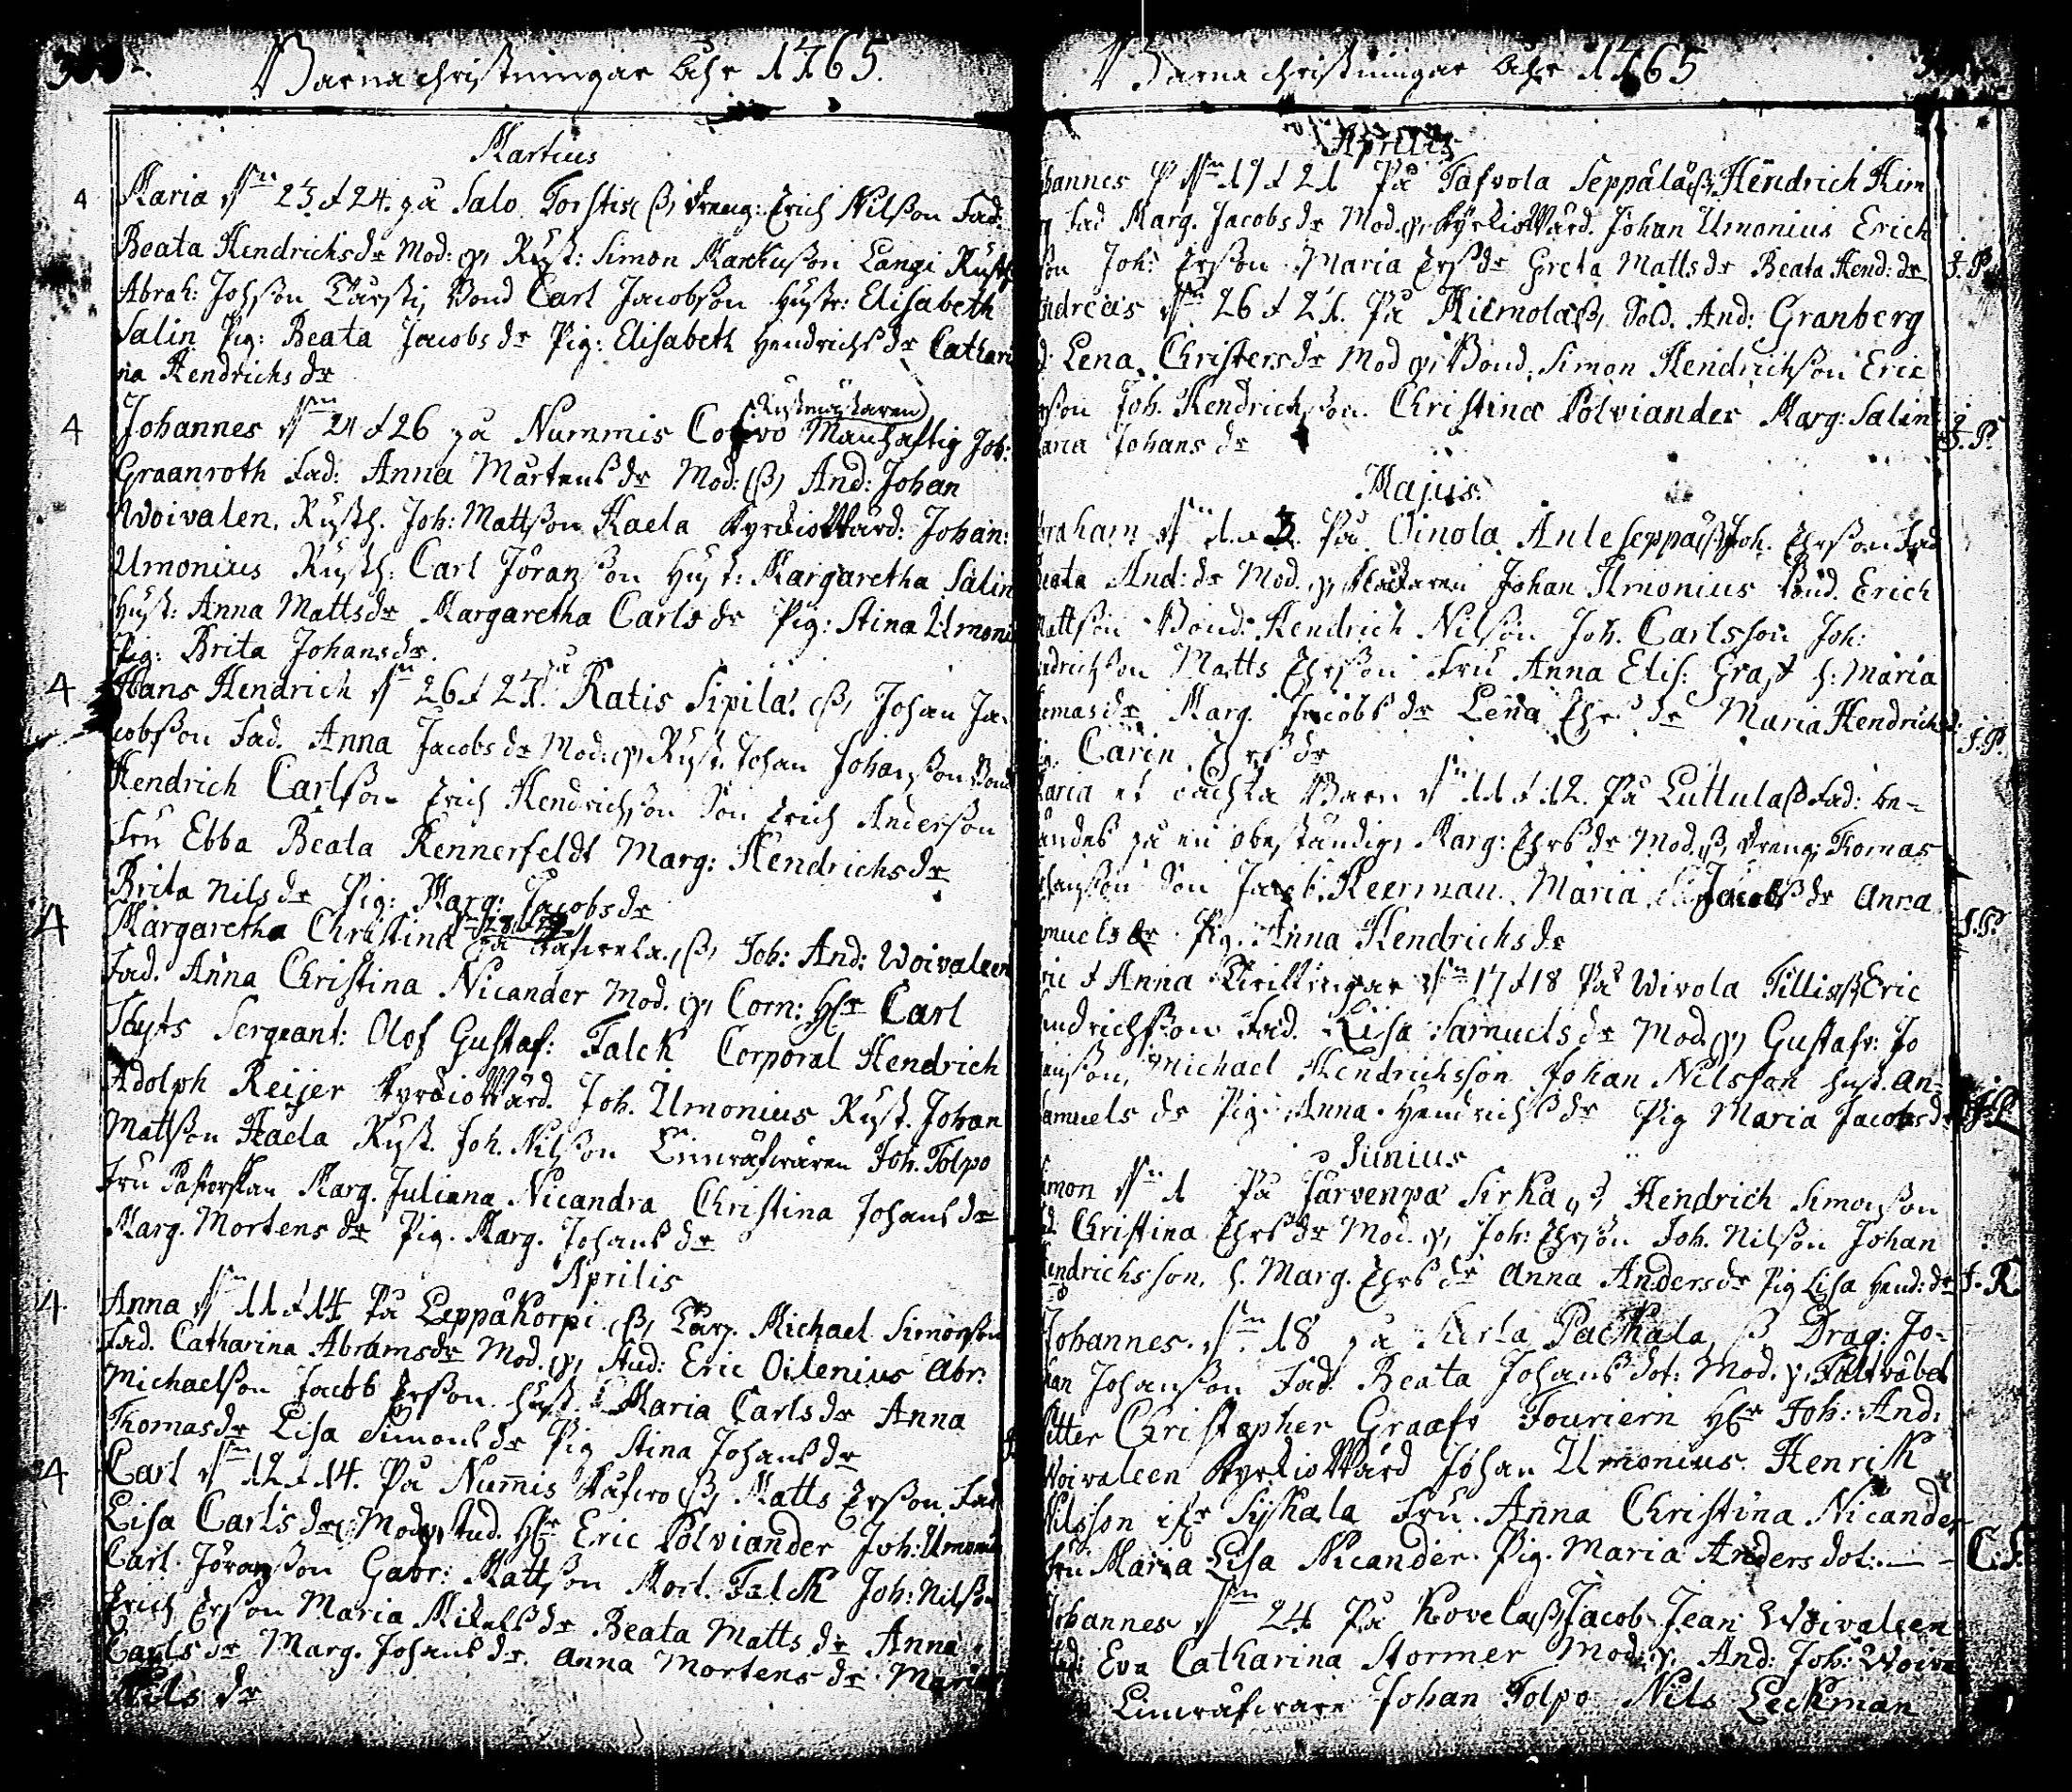 Barnachristningar Åhr 1765.
Martius
4 Maria 23 d 24. på Salo Torstis Dreng: Erich Nilsson Fad.
Beata Hendrichsdr Mod: Rust: Simon Markusson Langi Rusth
Abrah: Johsson Bond Carl Jacobsson Hustr: Elisabeth
Salin Pig: Beata Jacobs dr Pig: Elisabeth Hendrichs dr Cathari
na Hendrichs dr
4 Johannes 24 d 26 på Nummis Manhaftig Joh:
Graanroth Fad: Anna Mårtens dr Mod: And: Johan
Woivalen. Rusth. Joh: Mattsson Kaela Kyrckiowärd: Johan:
Umonius Rusth: Carl Jöransson Hust: Margaretha Salin
Hust: Anna Mattsdr Margaretha Carlsdr Pig: Stina Umoni
Pig: Brita Johansdr.
4 Hans Hendrich 26 d 27. på Ratis Sipilä. Johan Ja-
cobsson Fad. Anna Jacobsdr Mod: Rust. Johan Johansson Bond
Hendrich Carlsson Erich Hendrichsson Son Erich Andersson
Fru Ebba Beata Rennerfeldt Marg: Hendrichsdr
Brita Nilsdr Pig: Marg: Jacobsdr
4 Margaretha Christina på Joh: And: Woivaleen
Fad. Anna Christina Nicander Mod. Corn: Hr Carl
Sergeant: Olof Gustaf: Falck Corporal Hendrich
Adolph Reijer Kyrckiowärd. Joh. Umonius Rust. Johan
Mattsson Kaela Rust. Joh. Nilsson Joh. Tolpo
Fru Pastorskan Marg. Juliana Nicandra Christina Johans dr
Marg. Mortens dr Pig. Marg. Johans dr
Aprilis
4 Anna 11 d 14 På Leppäkorpi Michael Simonsson
Fad. Catharina Abramsdr Mod. Stud: Eric Oilenius Abr.
Michaelsson Jacob Ersson Hust. Maria Carlsdr Anna
Thomasdr Lisa Simonsdr Pig Stina Johansdr
4 Carl 12 d 14. På Numis Matts Ersson Fad
Lisa Carls dr Mod Stud. Hr Eric Polviander Joh: Umoni
Carl Jöransson Gabr: Mattsson Mort. Falck Joh: Nilsson
Erich Ersson Maria Mikels dr Beata Matts dr Anna
Carls dr Marg. Johans dr Anna Mortens dr Maria
Nils dr
Barnachristningar Åhr 1765
Aprilis
hannes 19 d 21 På Tafvola Seppälä Hendrich Him
Fad Marg. Jacobs dr Mod. Kyrckiowärd. Johan Umonius Erich
son Joh: Ersson Maria Ersdr Greta Mattsdr Beata Hend: dr J. P.
ndreas 26 d 27. På Riemola Sold. And: Granberg
Lena Christersdr Mod Bond. Simon Hendrichsson Eric
sson Joh. Hendrichsson. Christina Polviander Marg: Salin
aria Johans dr J. P.
Majus.
raham d 3. På Oinola Anteseppä Joh. Ehrsson Fad
Beata And: dr Mod. Klockaren Johan Umonius Bond. Erich
Mattsson Bond. Hendrich Nilsson Joh. Carlsson Joh:
drichsson Matts Ehrsson Fru Anna Elis: H: Maria
omasdr Marg. Jacobs dr Lena Ehrs dr Maria Hendrichsd.
Carin Ehrs dr J. P.
Maria et oächta Barn 11 d 12. På Luttula Fad: be-
andes på en obeständig, Marg: Ehrs dr Mod. Dreng: Thomas
hansson Son Jacob Heerman. Maria Jacobs dr Anna
muels dr Pig. Anna Hendrichsdr J. P.
ric d Anna Twillingar 17 d 18 På Wivola Tillis Eric
endrichsson Fad. Lisa Samuelsdr Mod. Gustafv: Jo
ansson, Michael Hendrichsson Johan Nilsson hust. An-
Samuels dr Pig: Anna Hendrichs dr Pig Maria Jacobsdr
Junius
imon 1 På Järvenpä Sirka, Hendrich Simonsson
Christina Ehrs dr Mod. Joh: Ehrsson Joh. Nilsson Johan
endrichsson, h. Marg. Ehrs dr Anna Andersdr Pig Lisa Hend: dr J. R.
Johannes. 18 på Packala Drag: Jo-
han Johansson Fad. Beata Johans dot: Mod. Fältväbel
Petter Christopher Graafv Fouriern Hr Joh: And:
Woivaleen Kyrckiowärd Johan Umonius. Henrik
Nilsson Syskala Fru. Anna Christina Nicander
Fru Maria Lisa Nicander. Pig. Maria Anders dot: C: S.
Johannes 24 På Kovela Jacob Jean Woivaleen
Fad: Eva Catharina Stormer Mod: And: Joh: Woiva
Johan Tolpo Nils Leckman